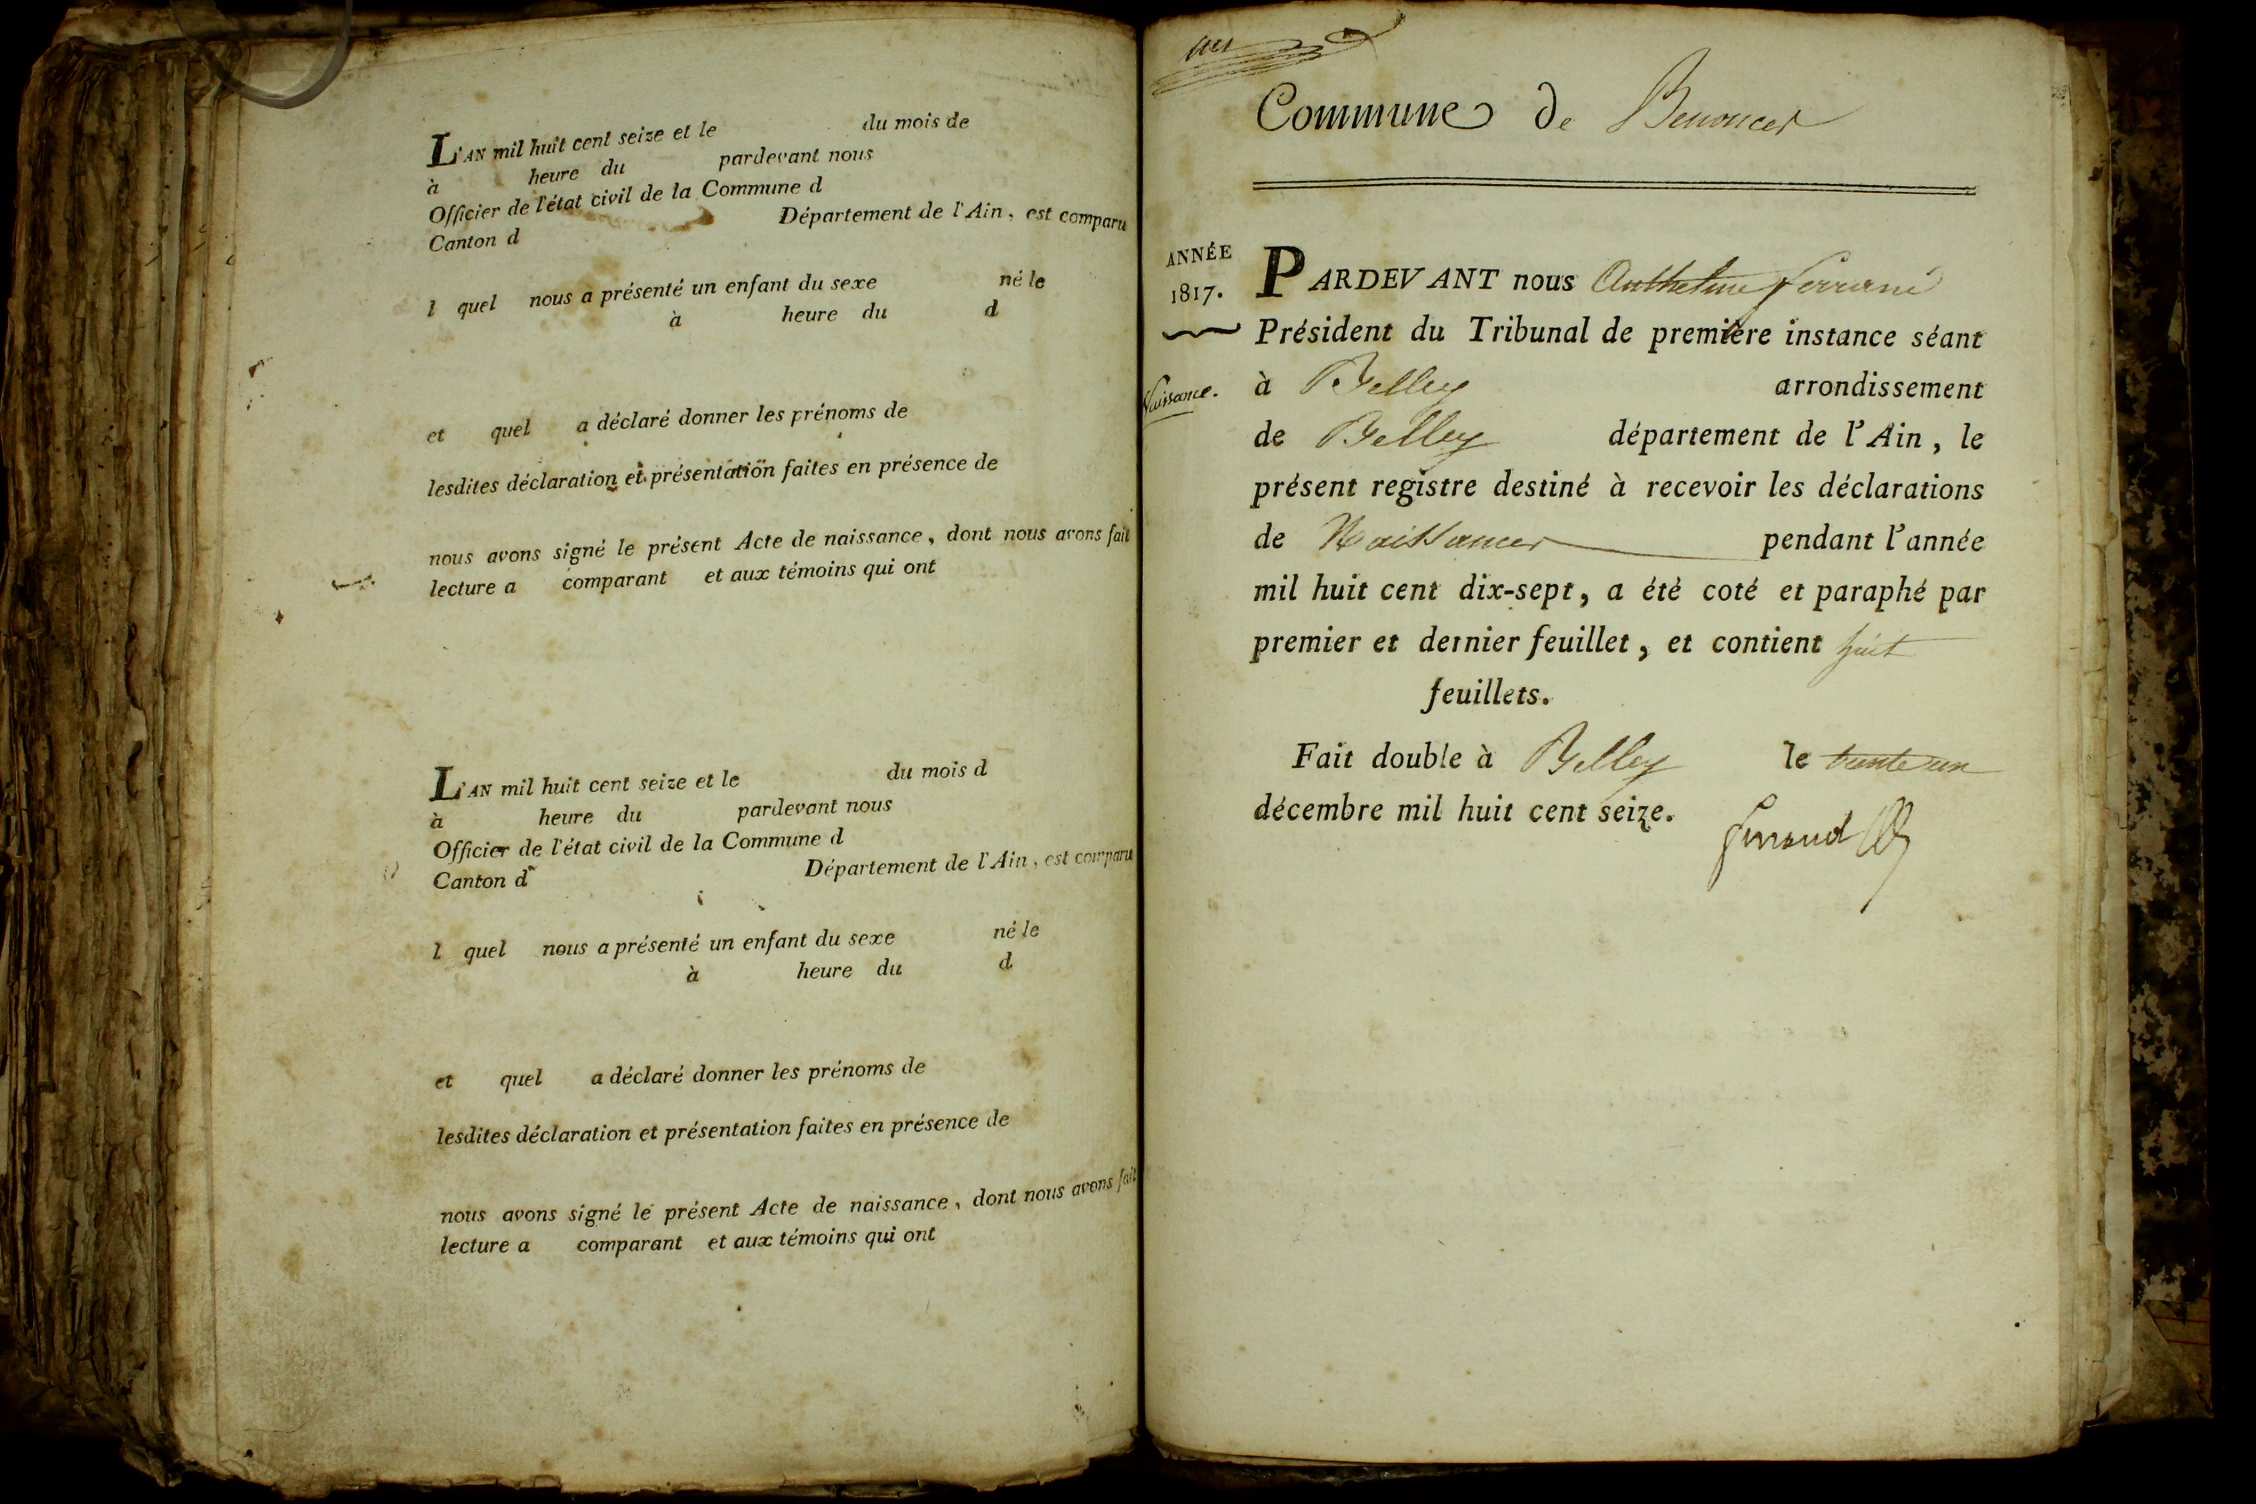 L'AN mil huit cent seize et le du mois de
à heure du pardevant nous
Officier de l'état civil de la Commune d
Canton d Département de l'Ain, est comparu
l quel nous a présenté un enfant du sexe né le
à heure du d
et quel a déclaré donner les prénoms de
lesdites déclaration et présentation faites en présence de
nous avons signé le présent Acte de naissance, dont nous avons fait
lecture a comparant et aux témoins qui ont
L'AN mil huit cent seize et le du mois d
à heure du pardevant nous
Officier de l'état civil de la Commune d
Canton d Département de l'Ain, est comparu
l quel nous a présenté un enfant du sexe né le
à heure du d
et quel a déclaré donner les prénoms de
lesdites déclaration et présentation faites en présence de
nous avons signé le présent Acte de naissance, dont nous avons fait
lecture a comparant et aux témoins qui ont
Commune de Benonces
ANNÉE
1817.
Naissance.
PARDEVANT nous Anthelme Ferrand
Président du Tribunal de première instance séant
à Belley arrondissement
de Belley département de l'Ain, le
présent registre destiné à recevoir les déclarations
de Naissances pendant l'année
mil huit cent dix-sept, a été coté et paraphé par
premier et dernier feuillet, et contient huit
feuillets.
Fait double à Belley le trente un
décembre mil huit cent seize.
Ferrand